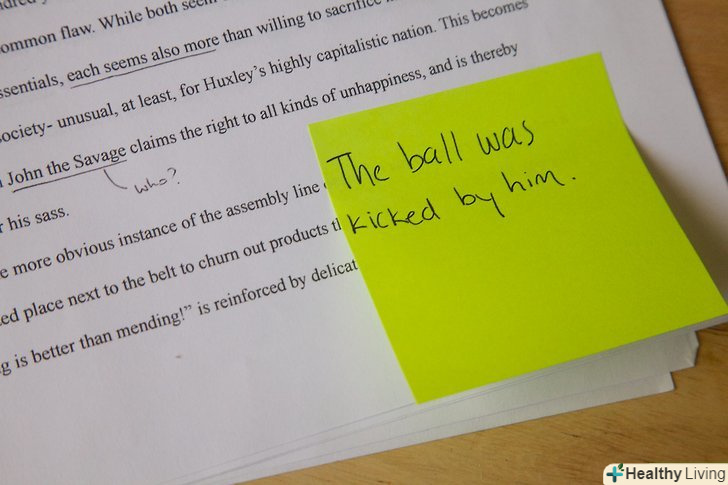 ommon flaw. While both
ssentials, each seems also more than willing to sacrifice
ociety- unusual, at least, for Huxley's highly capitalistic nation. This becomes
John the Savage claims the right to all kinds of unhappiness, and is thereby
who?
r his sass.
e more obvious instance of the assembly line
ed place next to the belt to churn out products
g is better than mending!" is reinforced by delicat
The ball was
kicked by him.
Healthy Living